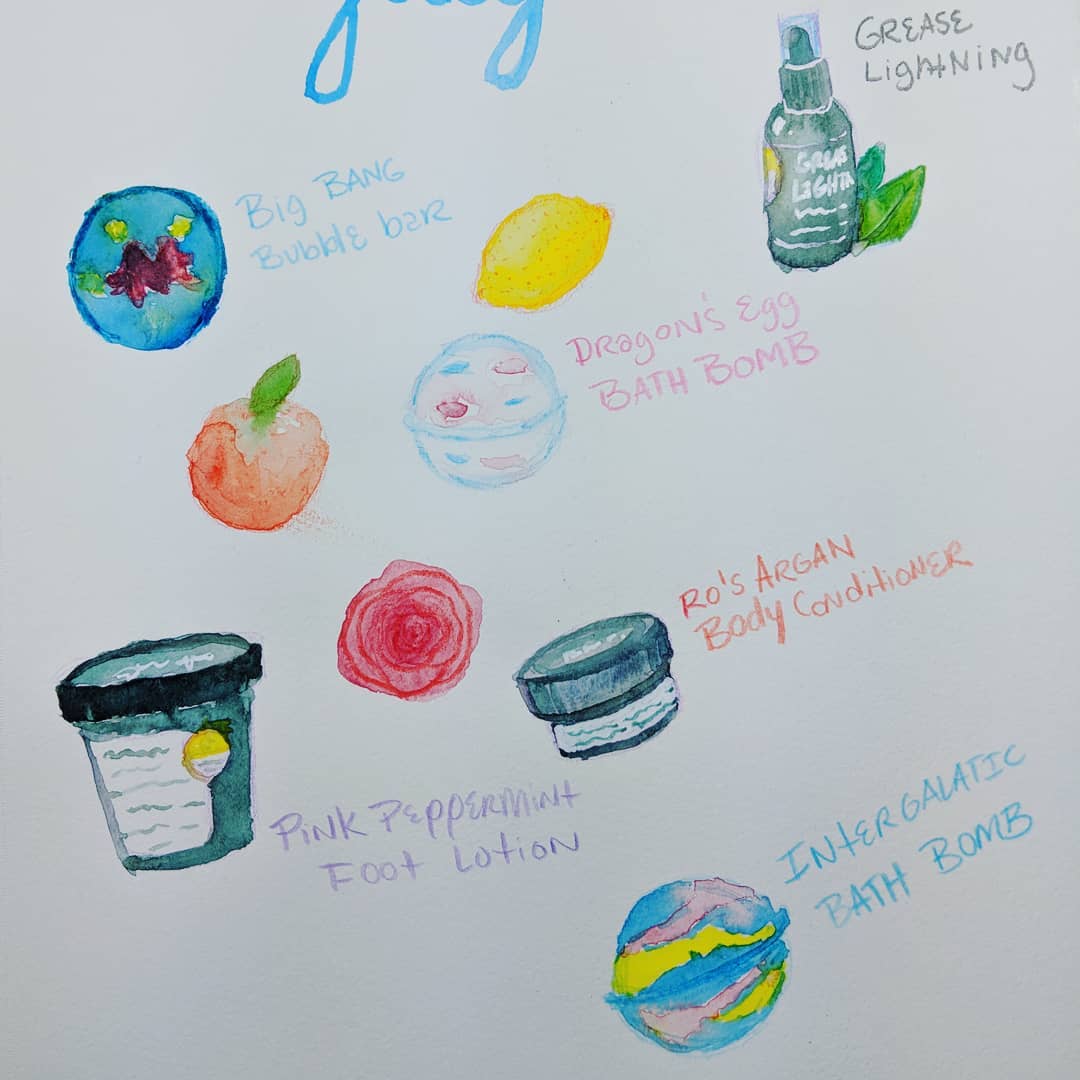 GREASE
Lightning
GREAS
LIGHTN
Big BANG
Bubble bar
DRagon's Egg
BATH BOMB
Ro's ARGAN
Body Conditioner
Pink Peppermint
Foot Lotion
INTERGALATIC
BATH BOMB